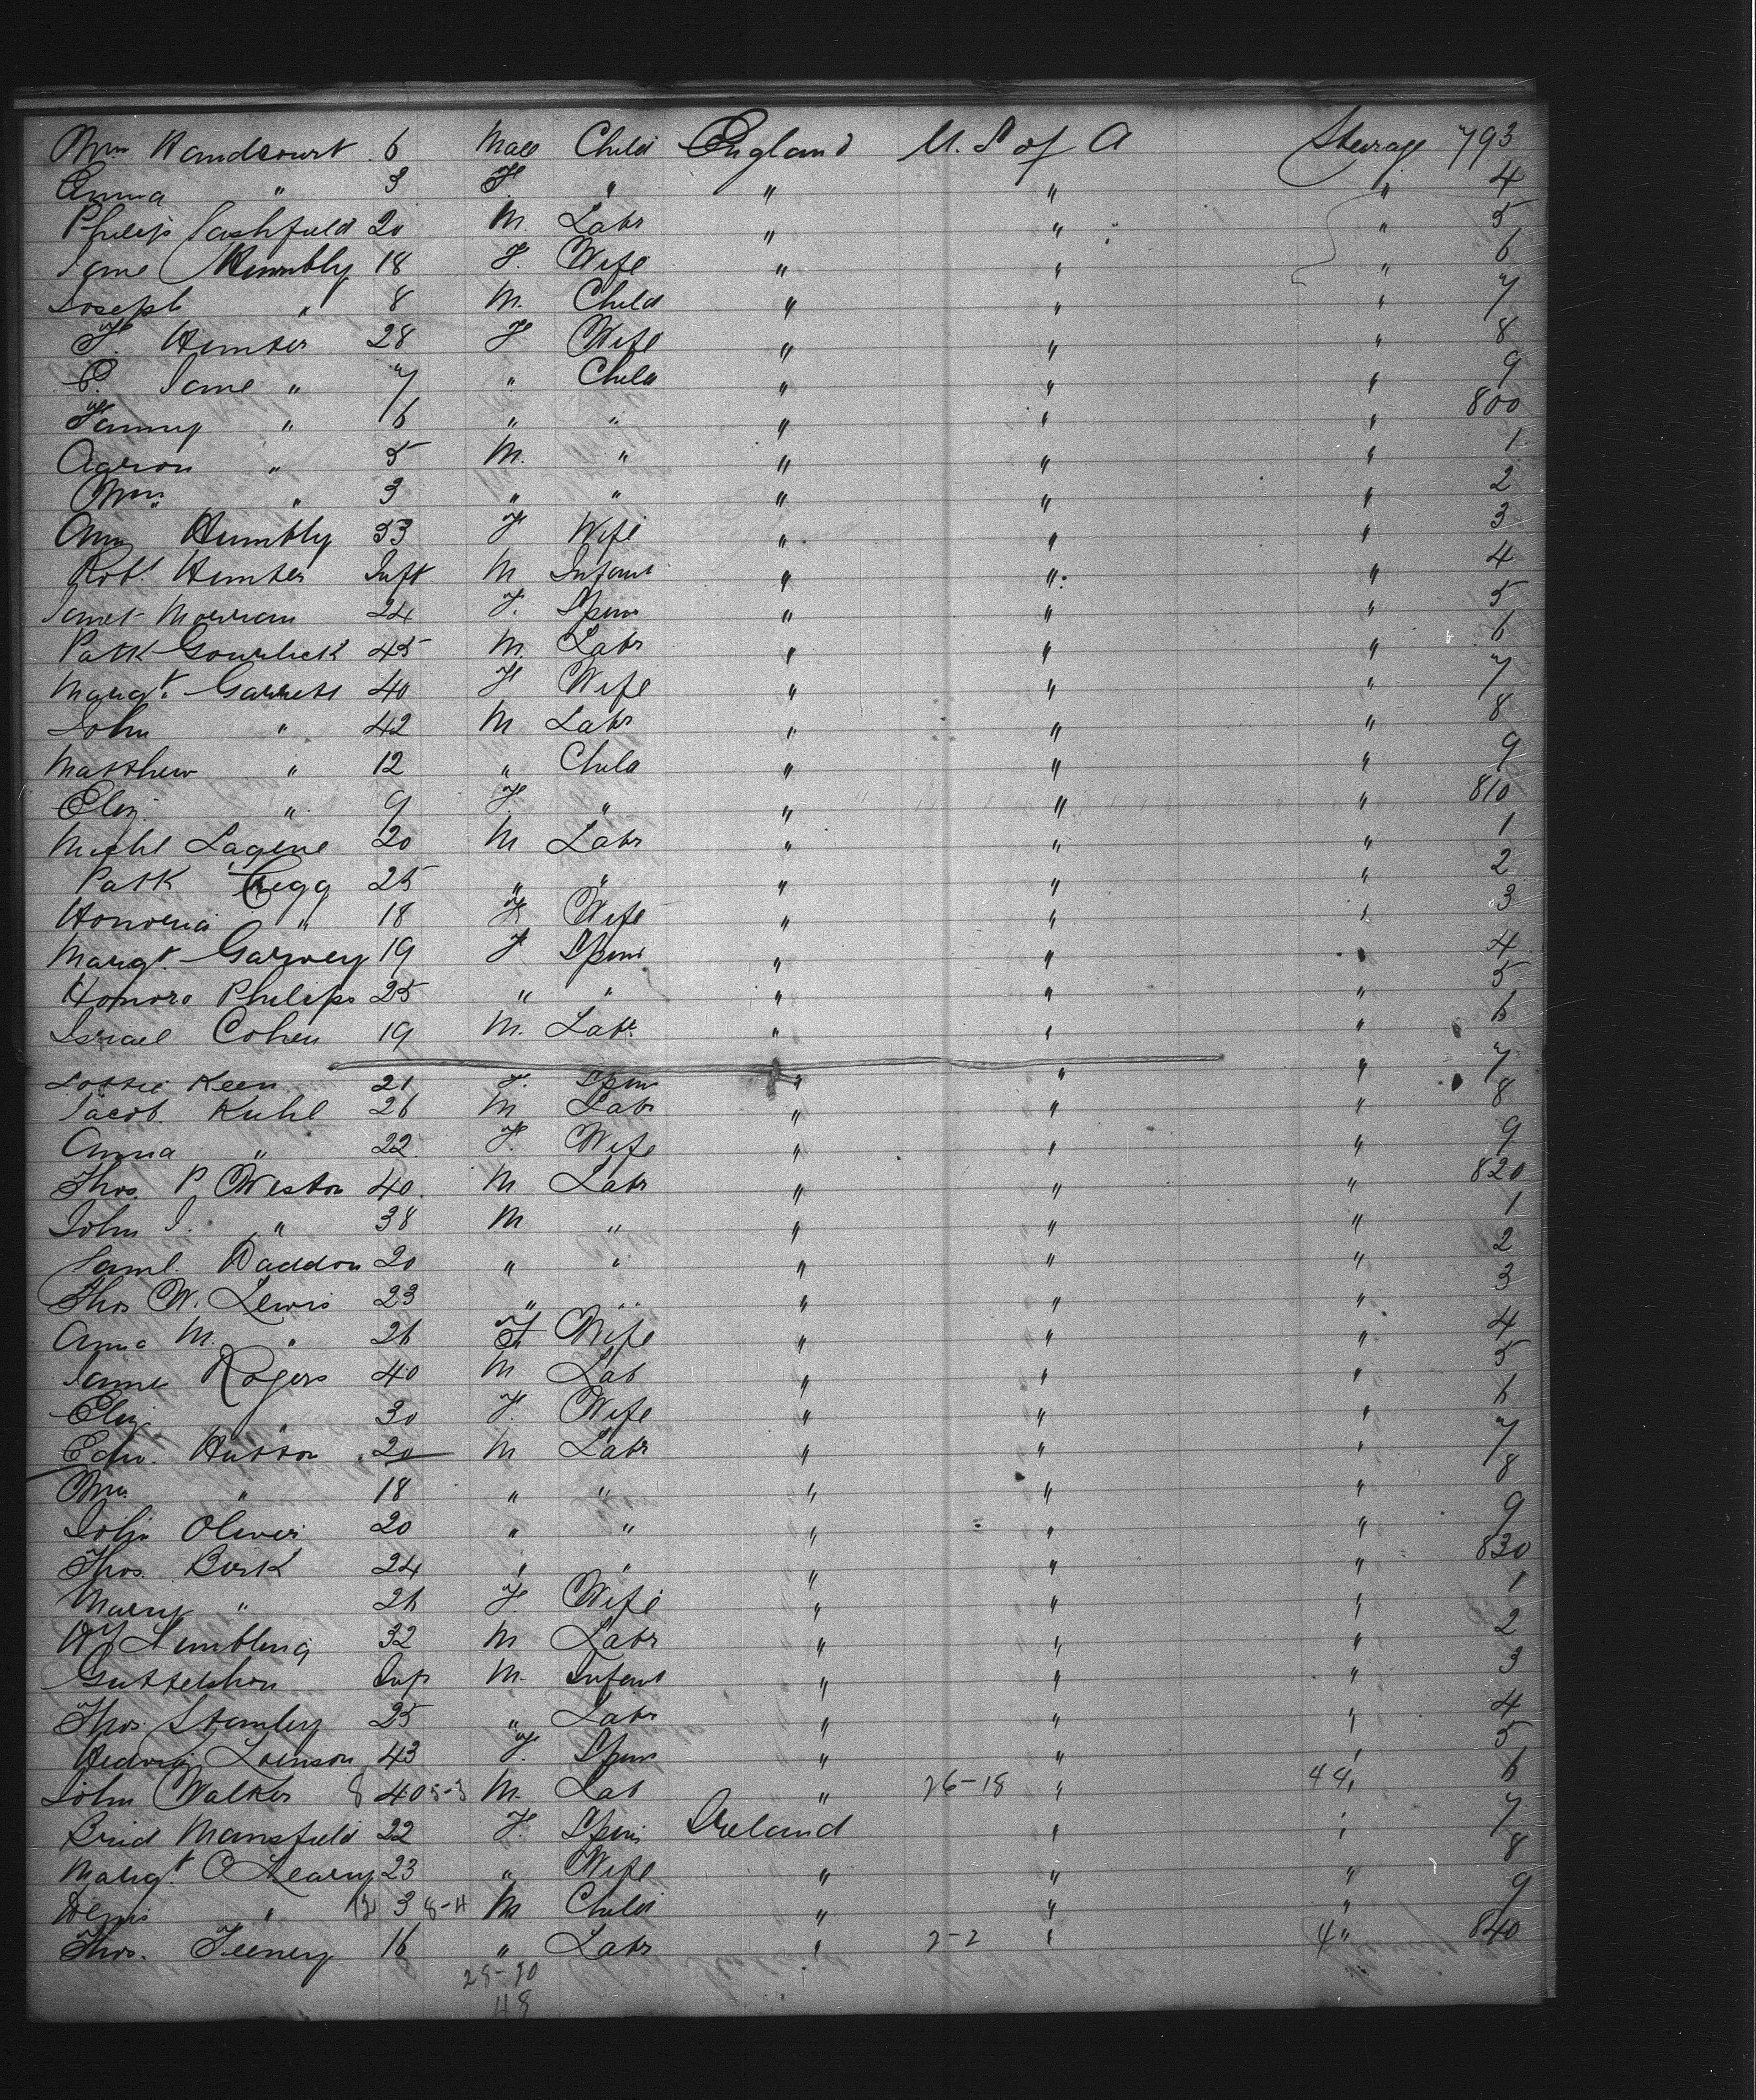 Wm Handcourt 6 Male Child England U. S of A Steerage 793
Anna " 3 F. " " " " 4
Philip Cashfield 20 M. Labr " " " 5
Jane Humbly 18 F. Wife " " " 6
Joseph " 8 M. Child " " " 7
F. Hunter 28 F Wife " " " 8
E. Jane " 7 " Child " " " 9
Fanny " 6 " " " " " 800
" 5 M. " " " " 1
Wm " 3 " " " " " 2
Ann Humbly 33 F Wife " " " 3
Robt. Hunter Inft M Infant " " " 4
Janet 24 F. Spinr " " " 5
Patk 45 M. Labr " " " 6
Margt. Garrett 40 F Wife " " " 7
John " 42 M Labr " " " 8
Matthew " 12 " Child " " " 9
Eliz. " 9 F. " " " " 810
Michl 20 M Labr " " " 1
Patk Cregg 25 " " " " " 2
Honoria " 18 F Wife " " " 3
Margt. Garvey 19 F Spinr " " " 4
Honora Philips 25 " " " " " 5
Israel Cohen 19 M. Labr. " " " 6
Lottie Keen 21 F. Spinr " " " 7
Jacob Kuhl 26 M Labr " " " 8
Anna " 22 F. Wife " " " 9
Thos. P Weston 40 M Labr " " " 820
John J. " 38 M " " " " 1
Saml. Haddon 20 " " " " " 2
Thos W. Lewis 23 " " " " " 3
Anna M. " 26 F Wife " " " 4
James Rogers 40 M Lab " " " 5
Eliz " 30 F. Wife " " " 6
Edw. Hutton 20 M Labr " " " 7
Wm. " 18 " " " " " 8
John Oliver 20 " " " " " 9
Thos. Burk 24 " " " " " 830
Marry " 26 F. Wife " " " 1
Hy 32 M Labr " " " 2
Inf M. Infant " " " 3
Thos. Stanley 25 " Labr " " " 4
Hedwig 43 F. Spinr " " " 5
John Walker 8 40 5-3 M. Lab " 26-18 " 44 " 6
Brid Mansfield 22 F. Spinr Ireland " " 7
Margt. O Leary 23 " Wife " " " 8
Denis " 12 3 8-4 M Child " " " 9
Thos. Feeney 16 " Labr " 2-2 " 4 " 840
28-20
48